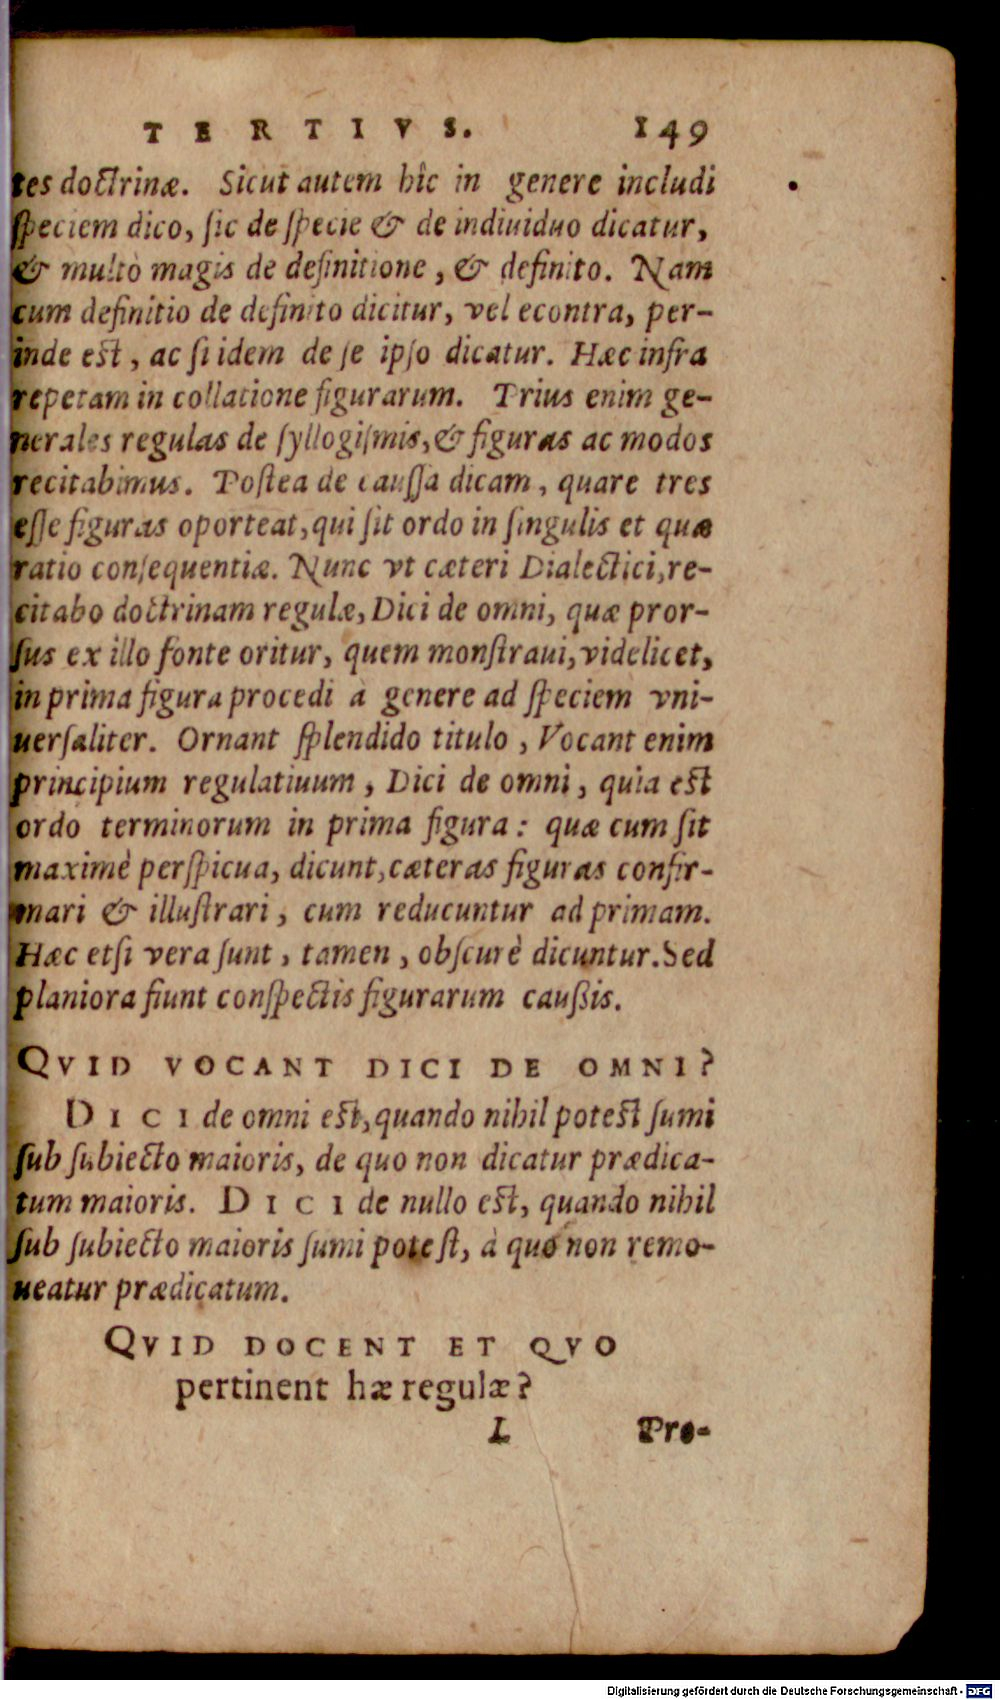 TERTIVS. 149
tes doctrinæ. Sicut autem hîc in genere includi
ſpeciem dico, ſic de ſpecie & de indiuiduo dicatur,
& multò magis de definitione, & definito. Nam
cum definitio de definito dicitur, vel econtra, per-
inde est, ac ſi idem de ſe ipſo dicatur. Hæc infra
repetam in collatione figurarum. Prius enim ge-
nerales regulas de ſyllogiſmis, & figuras ac modos
recitabimus. Poſtea de cauſſa dicam, quare tres
eſſe figuras oporteat, qui ſit ordo in ſingulis et quæ
ratio conſequentiæ. Nunc vt cæteri Dialectici, re-
citabo doctrinam regulæ, Dici de omni, quæ pror-
ſus ex illo fonte oritur, quem monſtraui, videlicet,
in prima figura procedi à genere ad ſpeciem vni-
uerſaliter. Ornant ſplendido titulo, Vocant enim
principium regulatiuum, Dici de omni, quia est
ordo terminorum in prima figura: quæ cum ſit
maximè perſpicua, dicunt, cæteras figuras confir-
mari & illuſtrari, cum reducuntur ad primam.
Hæc etſi vera ſunt, tamen, obſcurè dicuntur. Sed
planiora fiunt conſpectis figurarum cauſsis.
QVID VOCANT DICI DE OMNI?
DICI de omni est, quando nihil potest ſumi
ſub ſubiecto maioris, de quo non dicatur prædica-
tum maioris. DICI de nullo est, quando nihil
ſub ſubiecto maioris ſumi poteſt, à quo non remo-
ueatur prædicatum.
QVID DOCENT ET QVO
pertinent hæ regulæ?
L Pro-
Digitalisierung gefördert durch die Deutsche Forschungsgemeinschaft - DFG